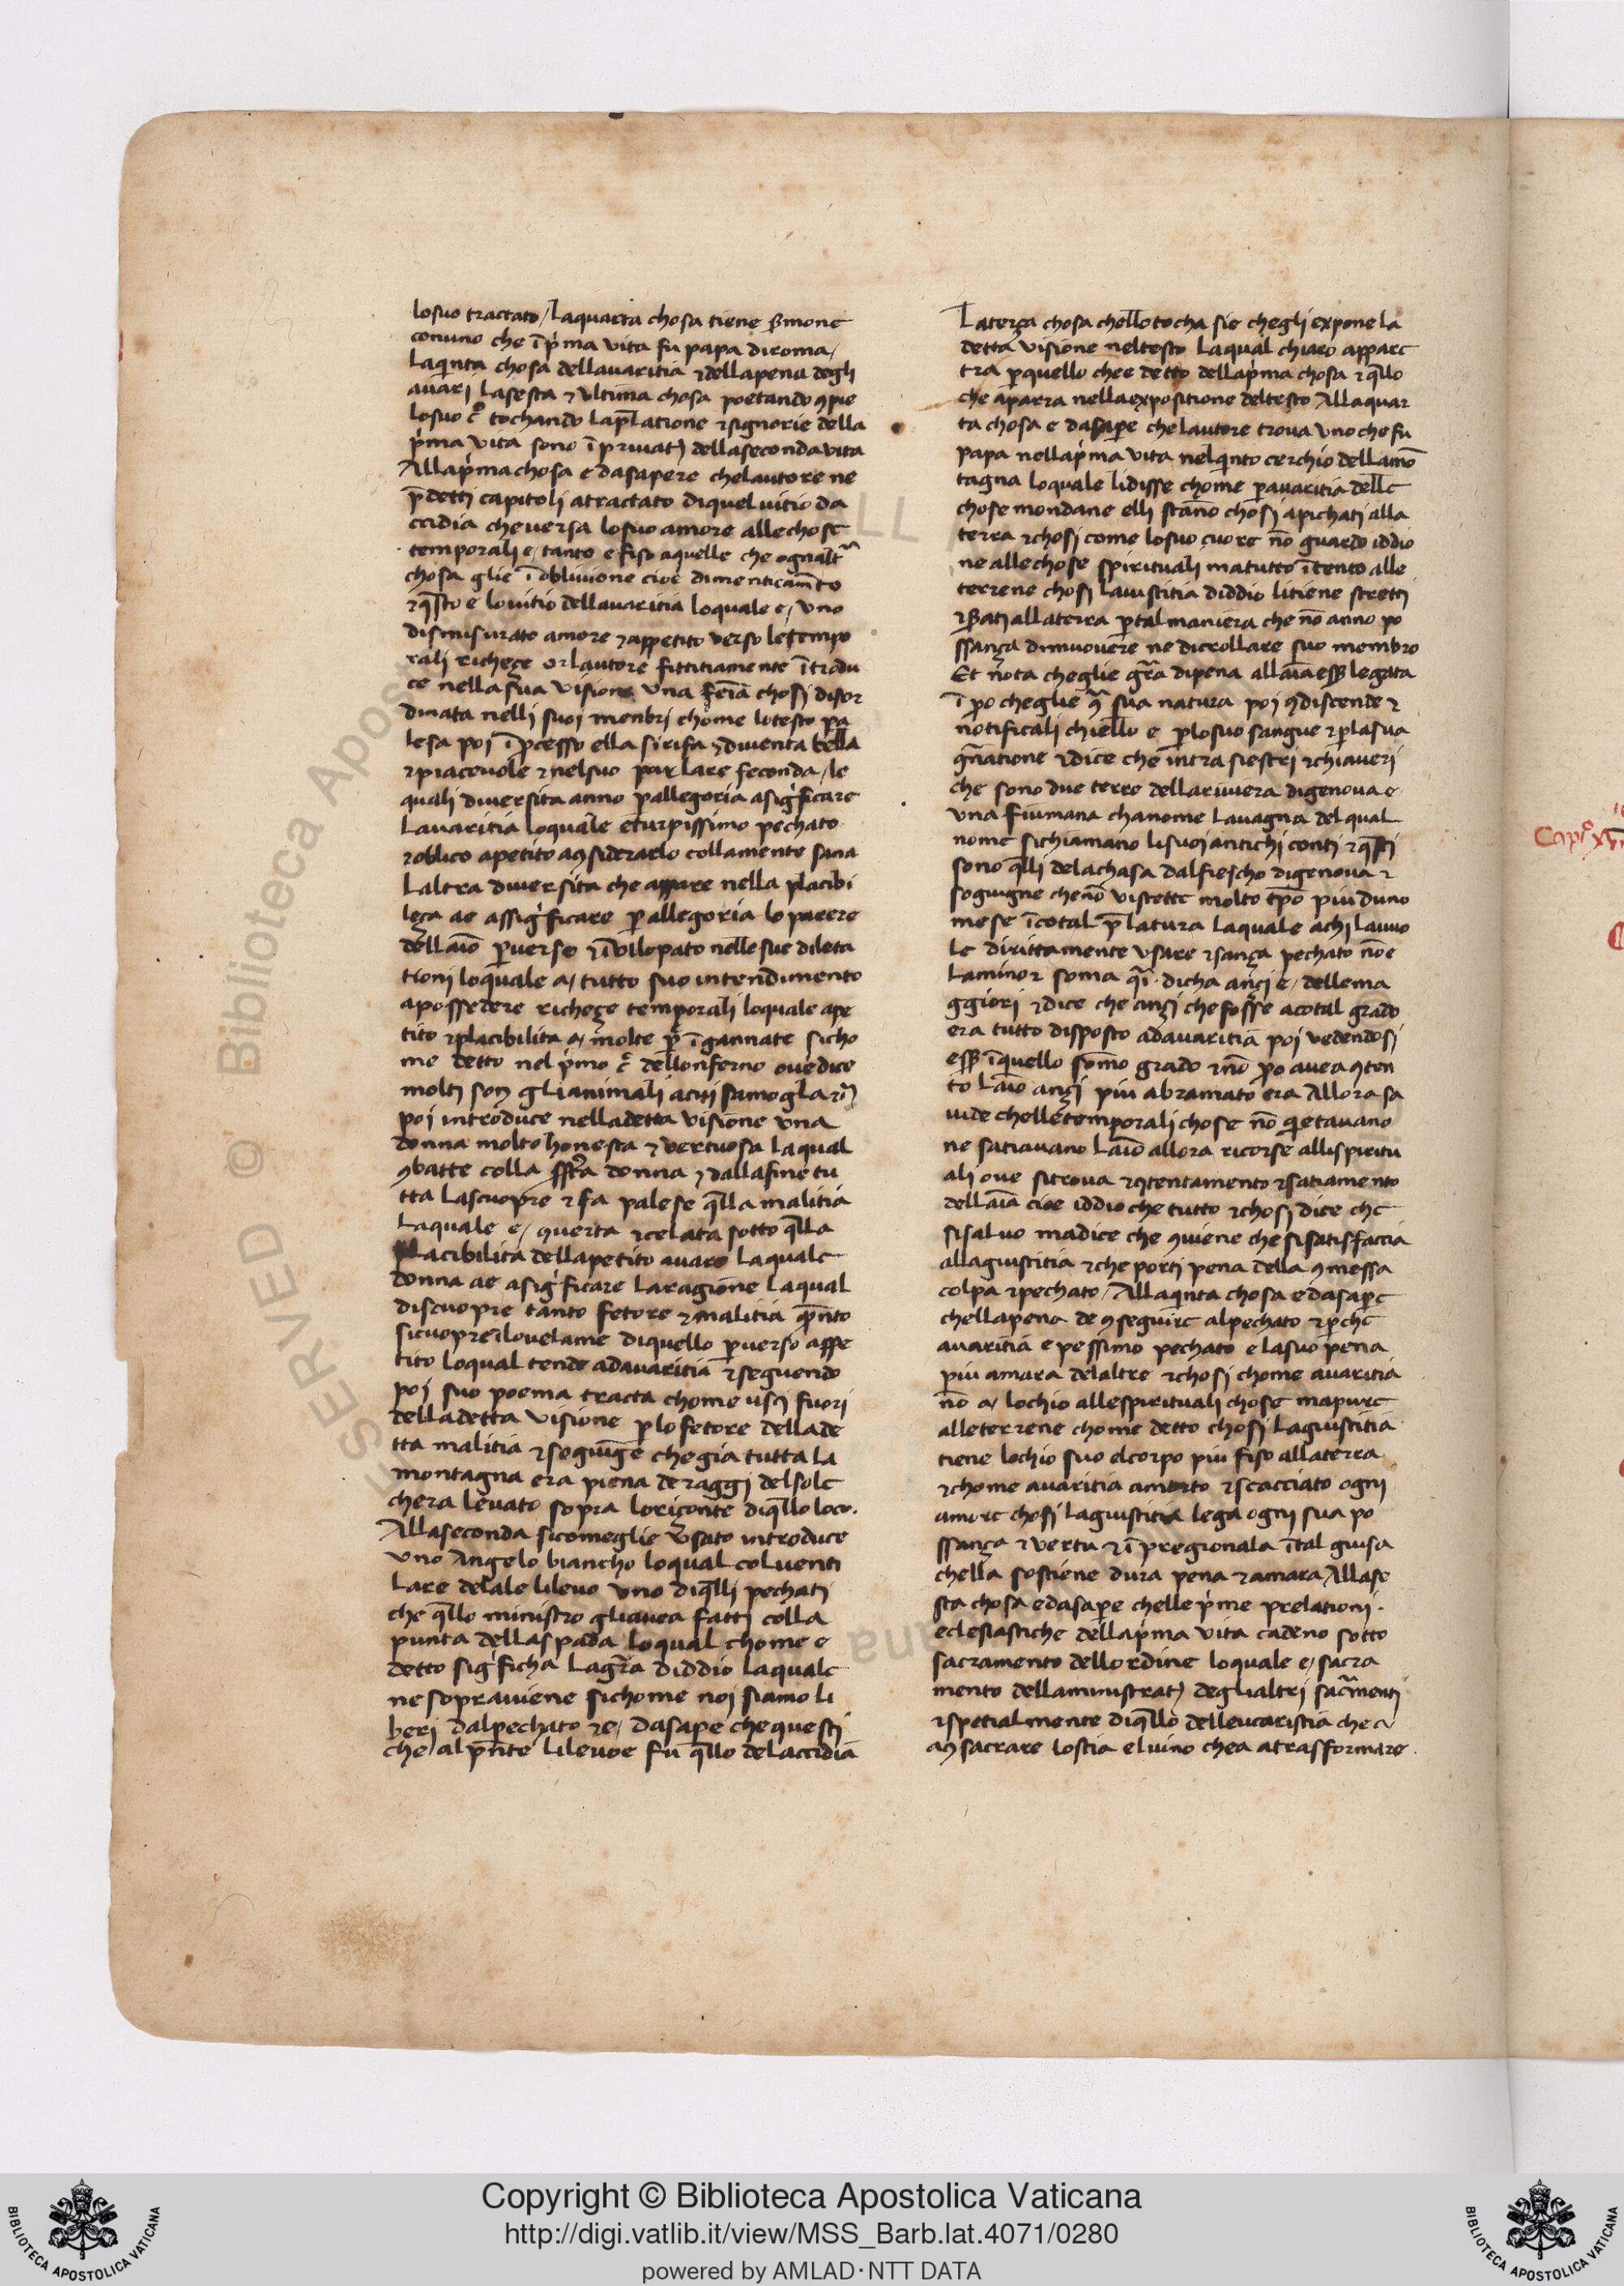 losuo tractato / laquarta chosa tiene s̄mone
conuno che ī p̍ma vita fu papa diroma /
Laq̍nta chosa dellauaritia ⁊dellapena degli
auarj Lasesta ⁊ vltima chosa poetando ꝯpie
losuo c̊ tochando lap̄latione ⁊signorie della
p̍ma vita sono ī priuatꝭ dellaseconda vita
Allap̍ma chosa e dasapere chelautore ne
p̄detti capitoli atractato diquel uitio da
ccidia cheuersa losuo amore allechose
temporali e / tanto e fiso aquelle che ognaltᵃ
chosa glie ī obliuione cioe dimenticam̄to
⁊q̄sto e louitio dellauaritia loquale e / vno
dismisurato amore ⁊appetito verso letempo
rali richeçe or lautore fittitiamente ītrodu
ce nella sua visione vna fem̄a chosj disor
dinata nelli suoi menbrj chome lotesto pa
lesa poj ī ꝓcesso ella sirifa ⁊diuenta bella
⁊piaceuole ⁊nelsuo parlare feconda / le
quali diuersita anno ꝑallegoria asig̍ficare
Lauaritia loquale eturpissimo pechato
⁊oblico apetito aꝯsiderarlo collamente sana
Laltra diuersita che appare nella placibi
leça ae assig̍ficare ꝑ allegoria lo parere
dellaīo ꝑuerso ⁊īuilopato nelle sue dileta
tioni loquale a / tutto suo intendimento
apossedere richeçe temporali loquale ape
tito ⁊placibilita a / molte ꝑ īgannate sicho
me detto nel p̍mo c̊ dellonferno ouedice
molti son glianimali acuj samoglaꝝ
poj introduce nelladetta visione vna
donna molto honesta ⁊ vertuosa laqual
ꝯbatte colla sst̄a donna ⁊dallafine tu
tta lascuopre ⁊ fa palese q̄lla malitia
Laquale e / ꝯuerta ⁊celata sotto q̄lla
placibilita dellapetito auaro laquale
donna ae asig̍ficare laragione laqual
discuopre tanto fetore ⁊malitia q̄nto
sicuopre īlouelame diquello ꝑuerso appe
tito loqual tende adauaritia ⁊seguendo
poj suo poema tracta chome uscj fuori
delladetta visione ꝑlo fetore dellade
tta malitia ⁊soguīge chegia tutta la
montagna era piena de raggi delsole
chera leuato sopra loriçonte diq̄llo loco.
Allaseconda sicomeglie vsato introduce
vno Angelo biancho loqual coluenti
lare delale lileuo vno diq̄lli pechati
che q̄llo ministro gliauea fatti colla
punta dellaspada loqual chome e
detto sig̍ficha lagr̄a diddio laquale
nesoprauiene sichome noi siamo li
beri dalpechato ⁊e / dasaꝑe chequesti
che alp̄nte lileuoe fu q̄llo delaccidia
Laterça chosa chellotocha sie chegli expone la
detta visione neltesto laqual chiaro appare
tra ꝑquello chee detto dellap̍ma chosa ⁊q̄llo
che aparra nellaexpositione deltesto Allaquar
ta chosa e dasaꝑe chelautore troua vno che fu
papa nellap̍ma vita nelq̍nto cerchio dellamō
tagna loquale lidisse chome ꝑauaritia delle
chose mondane elli stanno chosj apichatj alla
terra ⁊chosj come losuo cuore nō guardo iddio
ne allechose spirituali matutto ītento alle
terrene chosj laiustitia diddio litiene stretti
⁊s̄ati allaterra ꝑtal maniera che nō anno po
ssança dimuouere ne dicrollare suo membro
Et nota cheglie gr̄a dipena allaīa ess̄ legata
ī ꝑo cheglie ꝯᵃ sua natura poj ꝯdiscende ⁊
notificali chiello e ꝑlosuo sangue ⁊ꝑlasua
gn̄atione ⁊dice che intra siestri ⁊chiauerj
che sono due terre dellariuiera digenoua e
vna fiumana chanome lauagna del qual
nome sichiamano lisuoj antichi conti ⁊q̄sti
sono q̄lli delachasa dalfiescho digenoua ⁊
soguigne chenō uistette molto tp̄o piu duno
mese ī cotal p̄latura laquale achi lauuo
le dirittamente vsare ⁊sança pechato nō e
laminor soma q̄i dicha ançi e / dellema
ggiori ⁊dice che ançi che fosse acotal grado
era tutto disposto adauaritia poj vedendosj
ess̄ ī quello som̄o grado ⁊nō ꝑo auea ꝯten
to laīo ançi piu abramato era Allora sa
uide chelletemporali chose nō q̍etauano
ne satiauano laīo allora ricorse allispiritu
ali oue sitroua ⁊ꝯtentamento ⁊satiamento
dellaīa cioe iddio che tutto ⁊chosj dice che
sisaluo madice che ꝯuiene che sisatisfaccia
allagiustitia ⁊che portj pena della ꝯmessa
colpa ⁊pechato / Allaq̍nta chosa e dasaꝑe
chellapena de ꝯseguire alpechato ⁊ꝑche
auaritia e pessimo pechato e lasuo pena
piu amara delaltre ⁊chosj chome auaritia
nō a / lochio allespirituali chose mapure
alleterrene chome detto chosj lagiustitia
tiene lochio suo elcorpo piu fiso allaterra
⁊chome auaritia amorto ⁊scacciato ogni
amore chosj lagiustitia lega ogni sua po
ssança ⁊ vertu ⁊ī pregionala ītal guisa
chella sostiene dura pena ⁊amara Allase
sta chosa edasaꝑe chelle p̍me prelationi
eclesiastiche dellap̍ma vita cadeno sotto
sacramento dellordine loquale e / sacra
mento dellaministratꝭ deglialtri sacr̄menti
⁊spetialmente diq̄llo delleucaristia che a
aꝯsacrare lostia eluino chea atrasformare
Capᵒ
Copyright © Biblioteca Apostolica Vaticana
http://digi.vatlib.it/view/MSS_Barb.lat.4071/0280
powered by AMLAD·NTT DATA
BIBLIOTECA APOSTOLICA VATICANA
BIBLIOTECA APOSTOLICA VATICANA